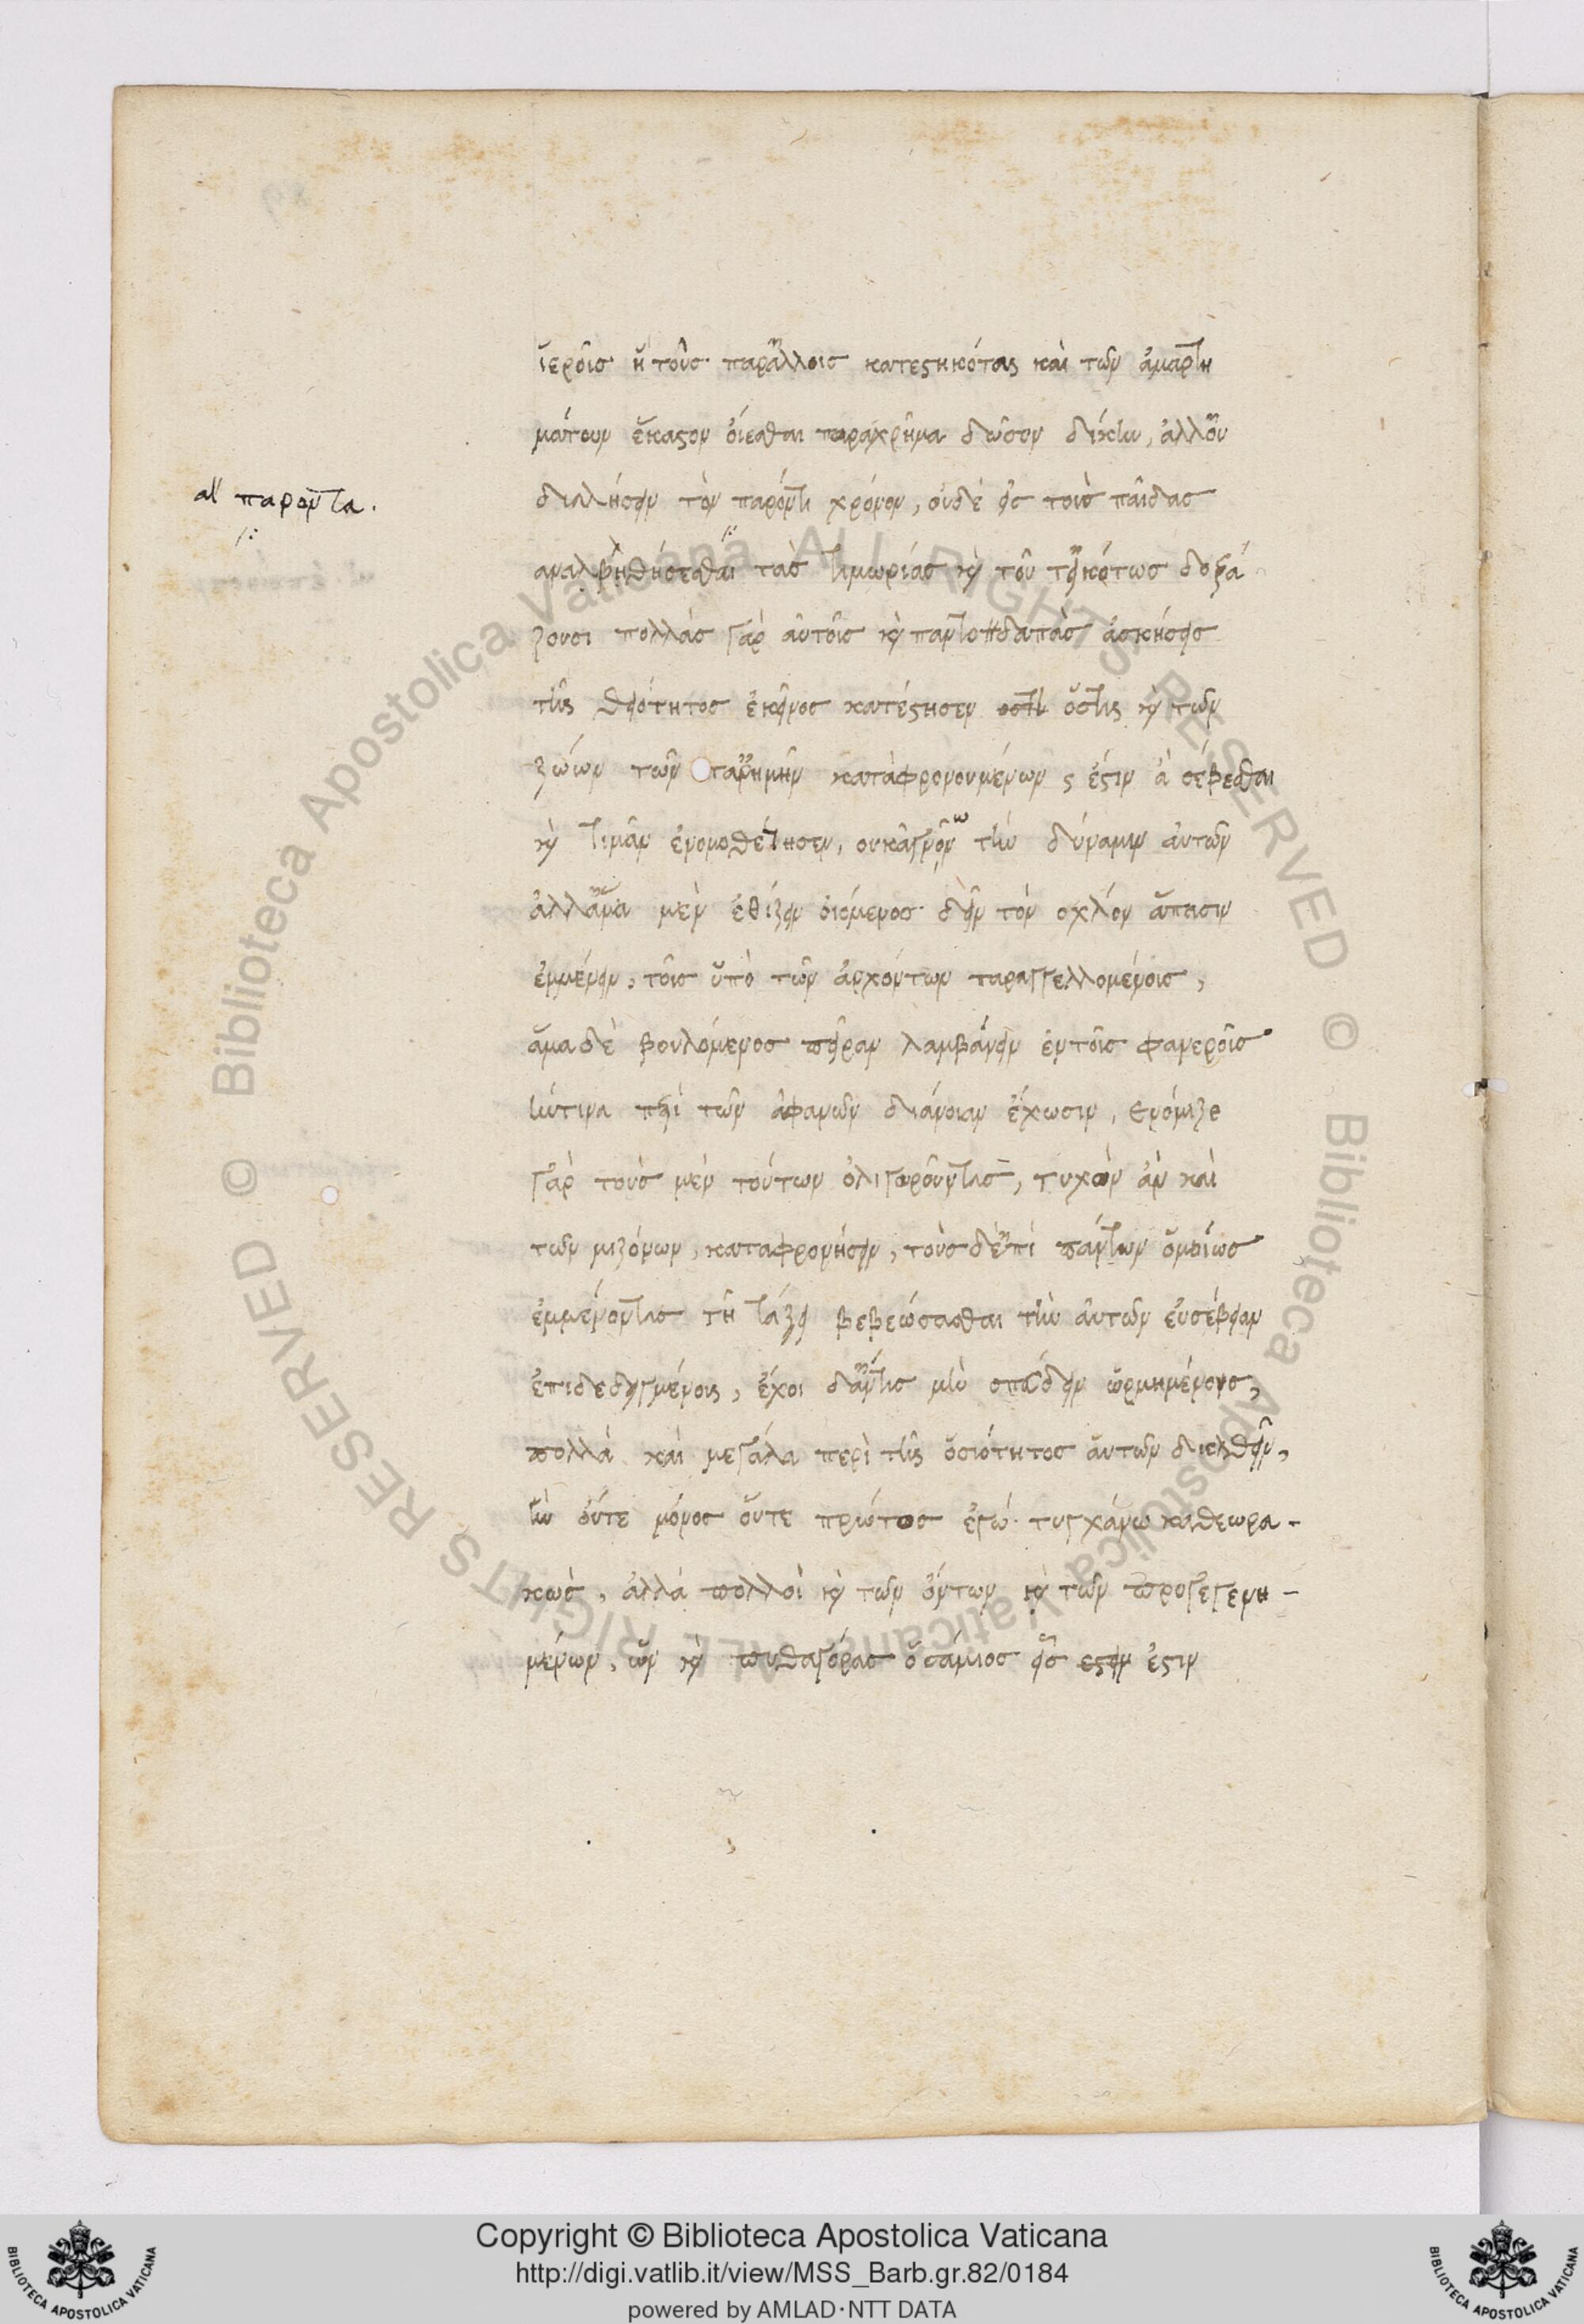 ἱεροῖς ἢ τοὺς παρ' ἄλλοις κατεστηκότας καὶ τῶν ἁμαρτη
μάτων ἕκαστον οἴεσθαι παραχρῆμα δώσειν δίκην, ἀλλ' οὐ
διαλήσειν τὸν παρόντι χρόνον, οὐδὲ εἰς τοὺς παῖδας
al' παροῦντα.
αναλβηθήσεσθαι τὰς τιμωρίας καὶ τοῦτ' εἰκότως δοξά
ζουσι πολλὰς γὰρ αὐτοῖς καὶ παντοδαπὰς ἀσκήσεις
τῆς θειότητος ἐκεῖνος κατέστησεν ὅστις καὶ τῶν
ζώων τῶν παρ' ἡμῖν καταφρονουμένων ἔστιν ἃ σέβεσθαι
καὶ τιμᾶν ἐνομοθέτησεν, οὐκ ἀγνοῶν τὴν δύναμιν αὐτῶν
ἀλλ' ἅμα μὲν ἐθίζειν οἰόμενος δεῖν τὸν ὀχλόν ἅπασιν
ἐμμένειν, τοῖς ὑπὸ τῶν ἀρχόντων παραγγελλομένοις,
ἅμα δὲ βουλόμενος πεῖραν λαμβάνειν ἐν τοῖς φανεροῖς
ἥντινα περὶ τῶν ἀφανῶν διάνοιαν ἔχωσιν, ἐνόμιζε
γὰρ τοὺς μὲν τούτων ὀλιγωροῦντας, τυχὸν ἂν καὶ
τῶν μιζόνων, καταφρονήσειν, τοὺς δ' ἐπὶ πάντων ὁμοίως
ἐμμένοντας τῇ τάξει βεβεώσασθαι τὴν αὐτῶν εὐσέβειαν
ἐπιδεδειγμένοις, ἔχοι δ' ἄν τις μὴ σπεύδειν ὡρμημένους,
πολλὰ καὶ μεγάλα περὶ τῆς ὁσιότητος αὐτῶν διελθεῖν,
ἣν οὔτε μόνος οὔτε πρῶτος ἐγὼ τυγχάνω καθεωρα-
κὼς, ἀλλὰ πολλοὶ καὶ τῶν ὄντων καὶ τῶν προγεγενη-
μένων, ὧν καὶ πυθαγόρας ὁ σάμιος εἷς ἐστιν